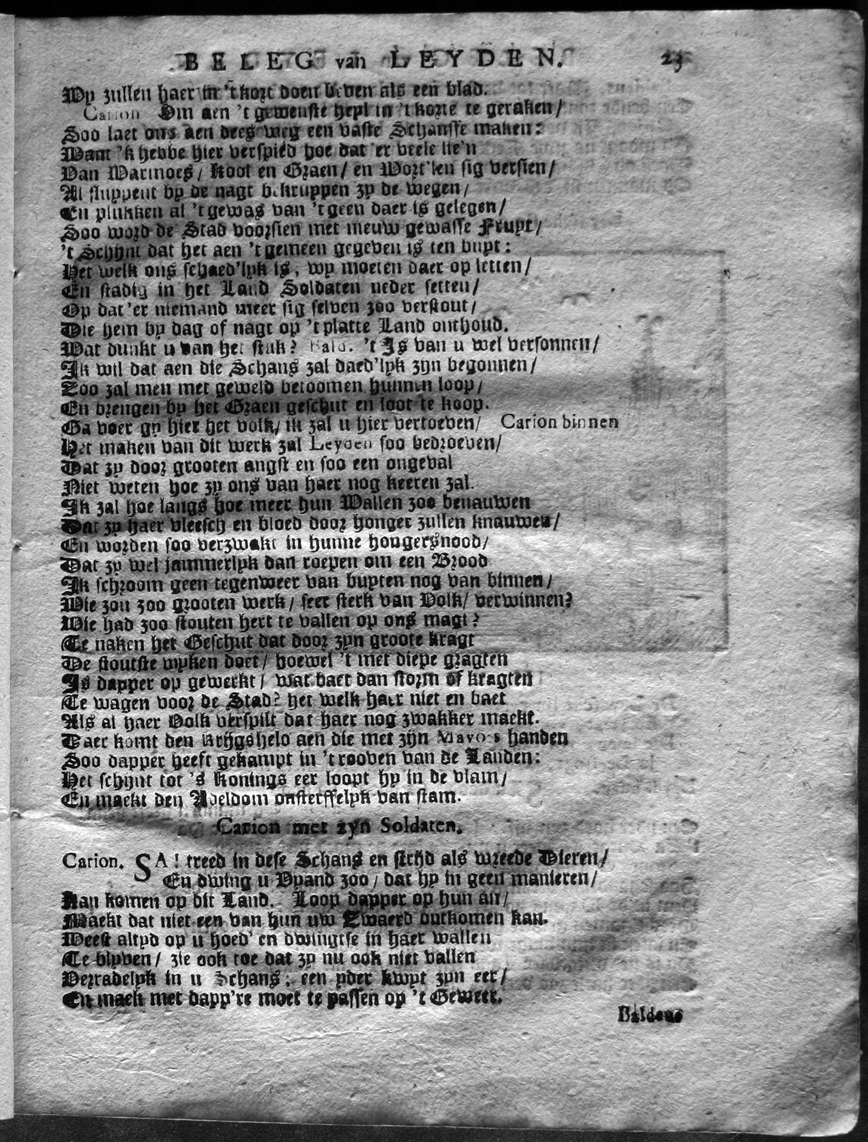 BELEG van LEYDEN. 23
Wy zullen haer in 't kort doen beven als een blad.
Carion Om aen 't gewenste heyl in 't korte te geraken/
Soo laet ons aen dees weg een vaste Schansse maken:
Want 'k hebbe hier verspied hoe dat 'er veele lie'n
Van Warmoes/ Kool en Graen/ en Wort'len sig versien/
Al sluppent by de nagt bekruppen zy de wegen/
En plukken al 't gewas van 't geen daer is gelegen/
Soo word de Stad voorsien met nieuw gewasse Frupt/
't Schijnt dat het aen 't gemeen gegeven is ten bupt:
Het welk ons schaed'lyk is, wy moeten daer op letten/
En stadig in het Land Soldaten neder setten/
Op dat 'er niemand meer sig selven zoo verstout/
Die hem by dag of nagt op 't platte Land onthoud.
Wat dunkt u van het stuk? Bald. 't Is van u wel versonnen/
Ik wil dat aen die Schans zal daed'lyk zyn begonnen/
Zoo zal men met geweld betoomen hunnen loop/
En brengen by het Graen geschut en loot te koop.
Ga voer gy hier het volk/ ik zal u hier vertoeven/ Carion binnen
Het maken van dit werk zal Leyden soo bedroeven/
Dat zy door grooten angst en soo een ongeval
Niet weten hoe zy ons van haer nog keeren zal.
Ik zal hoe langs hoe meer hun Wallen zoo benauwen
Dat zy haer vleesch en bloed door honger zullen knauwen/
En worden soo verzwakt in hunne hongersnood/
Dat zy wel jammerlyk dan roepen om een Brood
Ik schroom geen tegenweer van buyten nog van binnen/
Wie zou zoo grooten werk/ seer sterk van Volk/ verwinnen?
Wie had zoo stouten hert te vallen op ons magt?
Te naken het Geschut dat door zyn groote kragt
De stoutste wyken doet/ hoewel 't met diepe gragten
Is dapper op gewerkt/ wat baet dan storm of kragten
Te wagen voor de Stad? het welk haer niet en baet
Als al haer Volk verspilt dat haer nog zwakker maekt.
Daer komt den Krijgsheld aen die met zijn Mavors handen
Soo dapper heeft gekampt in 't rooven van de Landen:
Het schijnt tot 's Konings eer loopt hy in de vlam/
En maekt den Adeldom onsterffelyk van stam.
Carion met zyn Soldaten.
Carion. SA! treed in dese Schans en strijd als wreede Dieren/
En dwing u Vyand zoo/ dat hy in geen manieren/
Kan komen op dit Land. Loop dapper op hun an/
Maekt dat niet een van hun uw Zwaerd ontkomen kan.
Weest altyd op u hoed' en dwingtse in haer wallen
Te blyven/ zie ook toe dat zy nu ook niet vallen
Verradelyk in u Schans; een yder kwyt zyn eer/
En maek met dapp're moet te passen op 't Geweer.
Baldeus